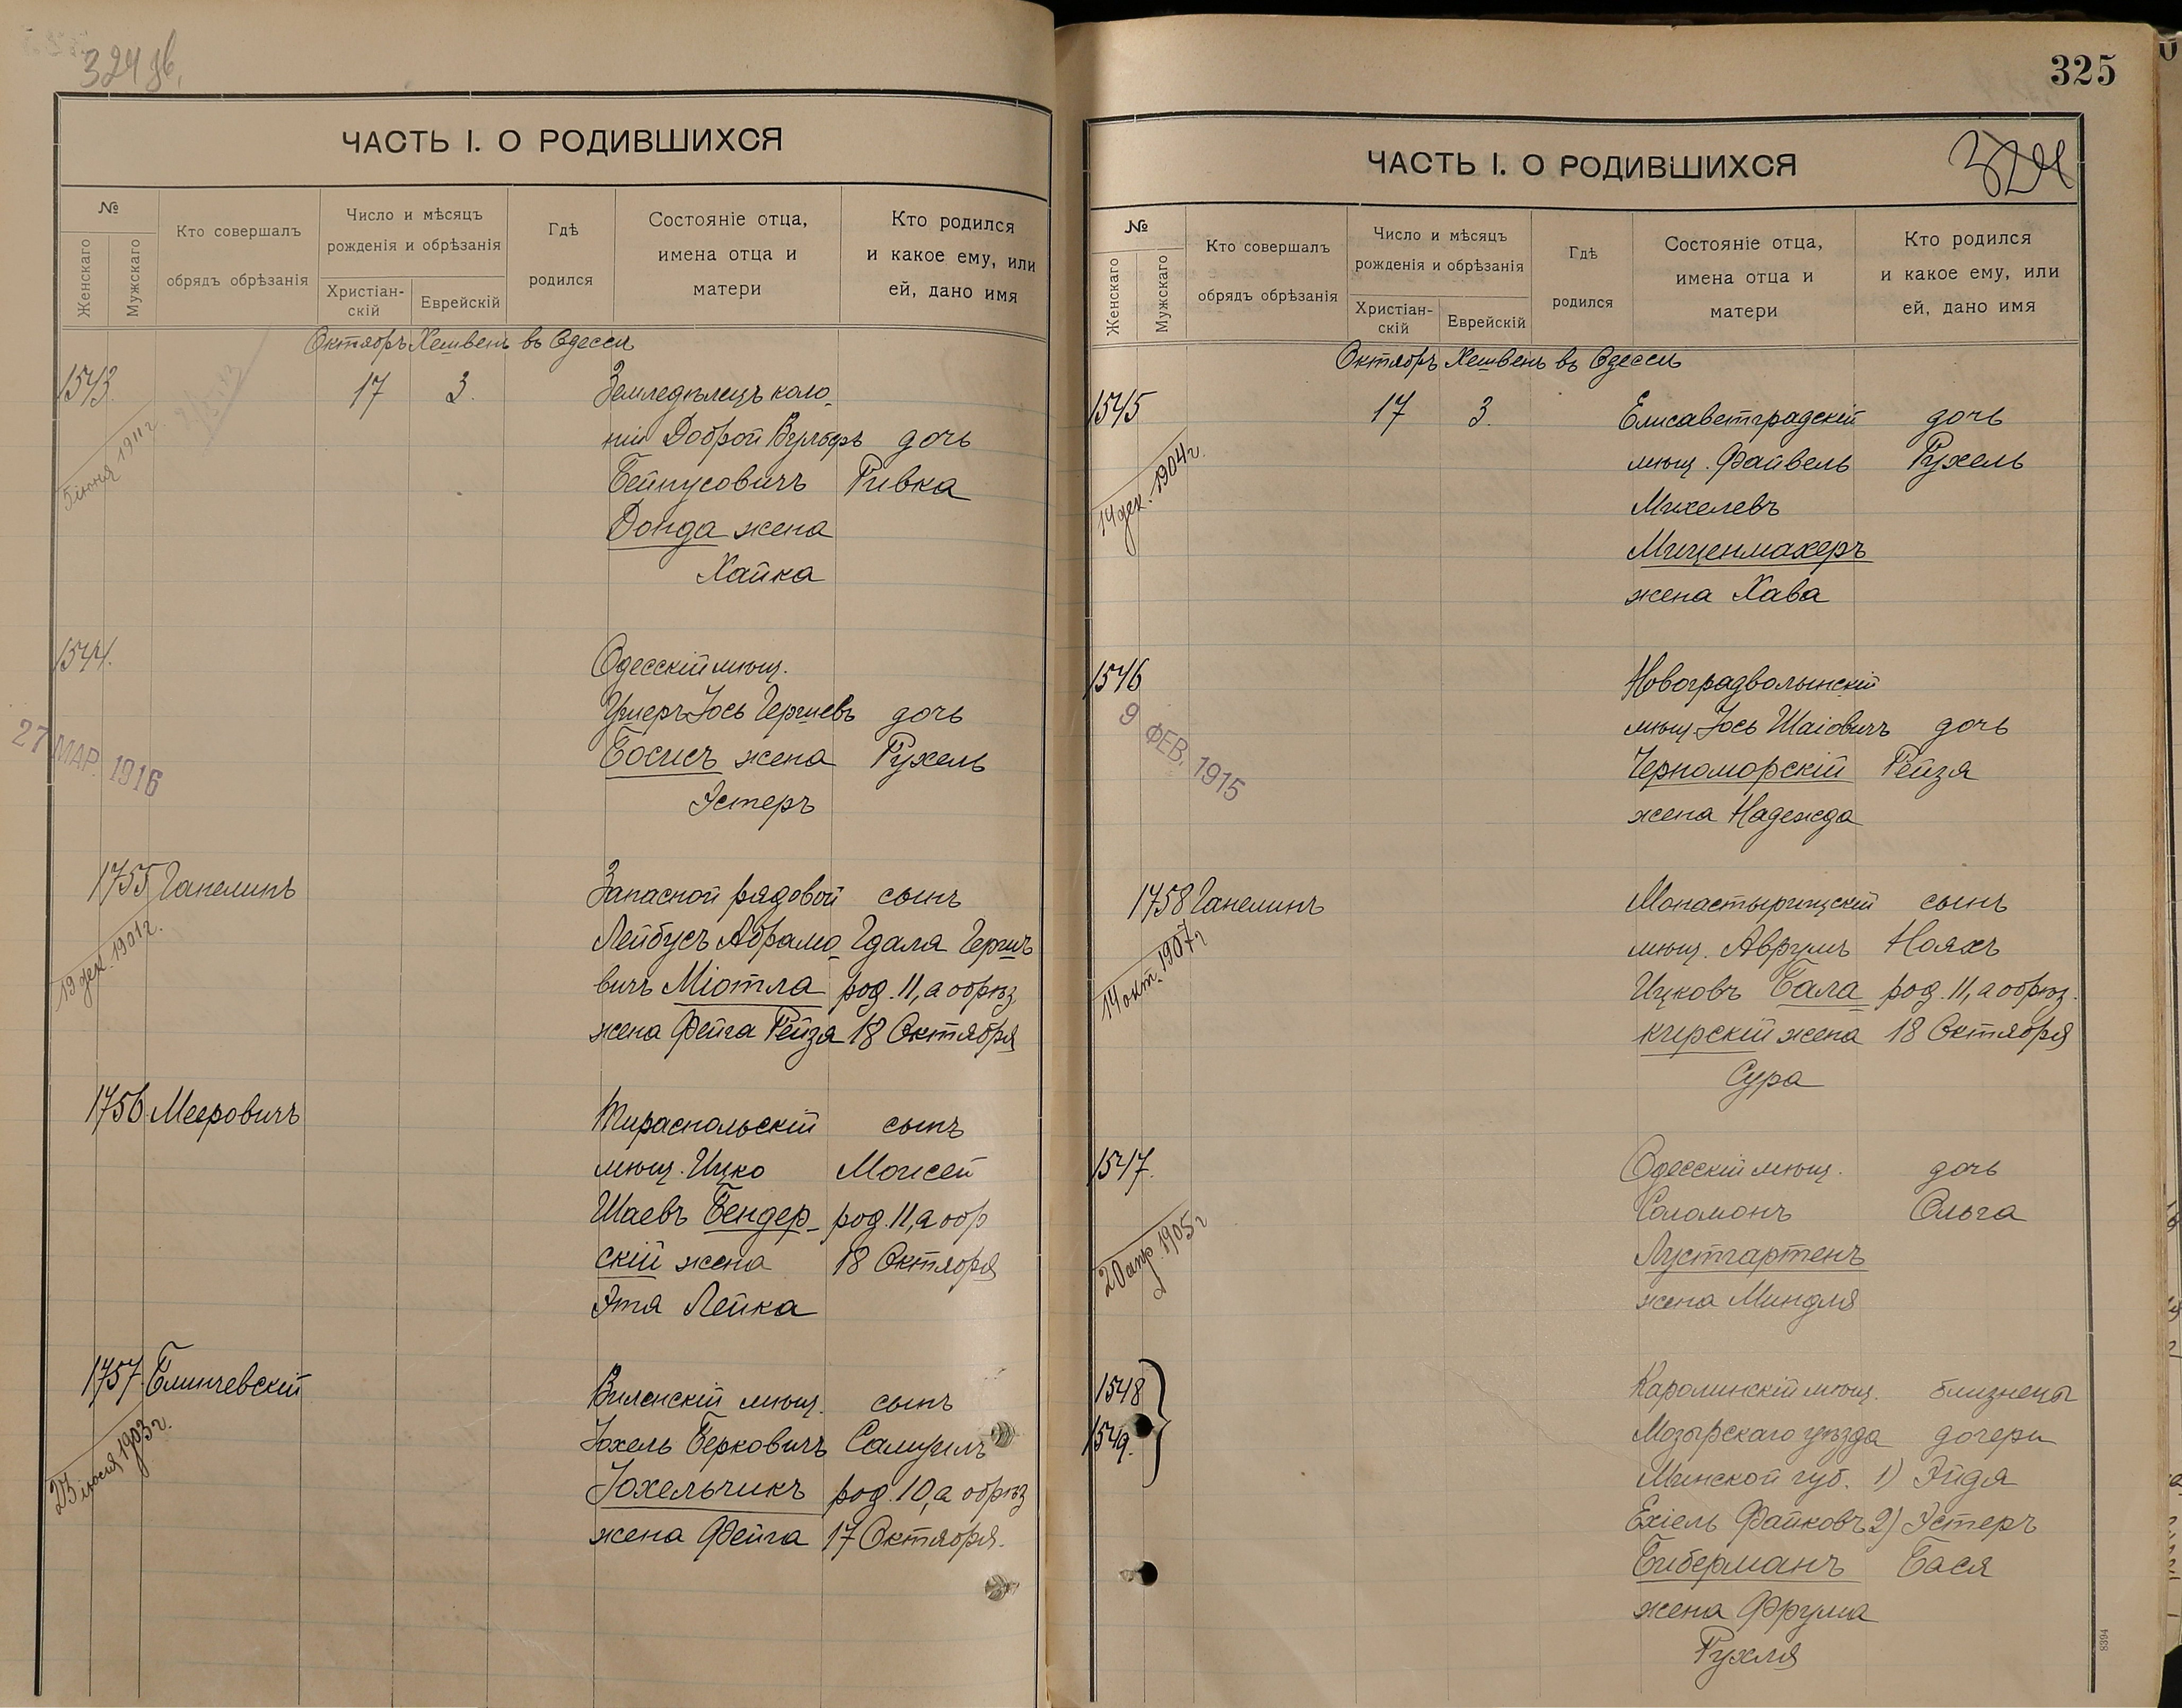 324 об.
ЧАСТЬ I. О РОДИВШИХСЯ
№
Женскаго
Мужскаго
Кто совершалъ
обрядъ обрѣзанія
Число и мѣсяцъ
рожденія и обрѣзанія
Христіан-
скій
Еврейскій
Гдѣ
родился
Состояніе отца,
имена отца и
матери
Кто родился
и какое ему, или
ей, дано имя
Октябрь Хешвенъ въ Одессѣ
1543.
5 іюня 1911 г.
17
3.
Земледѣлецъ коло-
ніи Доброй Вульфъ дочь
Бейнусовичъ Ривка
Донда жена
Хайка
1544.
27 МАР. 1916
Одесскій мѣщ.
Ушеръ Іось Гершевъ дочь
Босисъ жена Рухель
Эстеръ
1755 Ганелинъ
19 дек. 1901 г.
Запасной рядовой сынъ
Лейбусъ Абрамо- Гдаля Гершъ
вичъ Міотла род. 11, а обрѣз
жена Фейга Рейзя 18 Октября
1756 Мееровичъ
Тираспольскій сынъ
мѣщ. Ицко Моисей
Шаевъ Бендер- род. 11, а обр
скій жена 18 Октября
Этя Лейка
1757. Блинчевскій
23 іюля 1903 г.
Виленскій мѣщ. сынъ
Іохель Берковичъ Самуилъ
Іохельчикъ род. 10, а обрѣз
жена Фейга 17 Октября.
325
324
ЧАСТЬ I. О РОДИВШИХСЯ
№
Женскаго
Мужскаго
Кто совершалъ
обрядъ обрѣзанія
Число и мѣсяцъ
рожденія и обрѣзанія
Христіан-
скій
Еврейскій
Гдѣ
родился
Состояніе отца,
имена отца и
матери
Кто родился
и какое ему, или
ей, дано имя
Октябрь Хешвенъ въ Одессѣ
1545
14 дек. 1904 г.
17
3.
Елисаветградскій дочь
мѣщ. Файвель Рухель
Михелевъ
Миценмахеръ
жена Хава
1546
9 ФЕВ. 1915
Новоградволынскій
мѣщ Іось Шаіовичъ дочь
Черноморскій Рейзя
жена Надежда
1758 Ганелинъ
14 окт. 1907 г
Монастырищскій сынъ
мѣщ. Аврумъ Нояхъ
Ицковъ Бала- род. 11, а обрѣз.
клерскій жена 18 Октября
Сура
1547.
20 апр. 1905 г
Одесскій мѣщ. дочь
Соломонъ Ольга
Лустгартенъ
жена Миндля
1548
1549.
Каролинскій мѣщ. близнецы
Мозырскаго уѣзда дочери
Минской губ. 1) Эйдя
Ехіель Файковъ 2) Эстеръ
Биберманъ Бася
жена Фрума
Рухля
8394